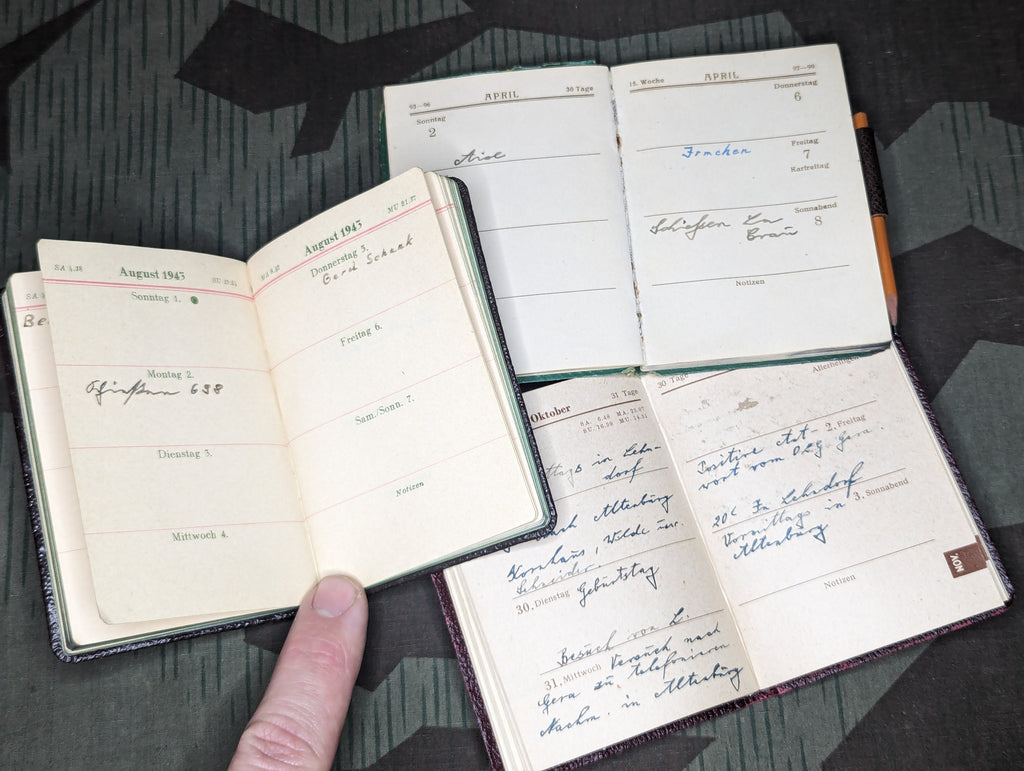 SA 4.38 August 1943 SU
Sonntag 1.
Montag 2.
Schießen 698
Dienstag 3.
Mittwoch 4.
SA
Be
August 1943 MU 21.37
Donnerstag 5.
Gerd Schenk
Freitag 6.
Sam./Sonn. 7.
Notizen
95—96 APRIL 30 Tage
Sonntag
2
15. Woche APRIL 97—99
Donnerstag
6
Irmchen Freitag
7
Karfreitag
Schießen Sonnabend
Brau 8
Notizen
Oktober 31 Tage
SA. 6.48 MA. 22.07
SU. 16.39 MU. 14.31
in Lehn-
dorf
nach Altenburg
Kornhaus, Wilde
Schneider
30. Dienstag Geburtstag
Besuch von L.
31. Mittwoch Versuch nach
Gera zu telefonieren
Nachm. in Altenburg
30 Tage Allerheiligen
Positive Ant- 2. Freitag
wort vom OLG Gera.
In Lehndorf
Vormittags in 3. Sonnabend
Altenburg
Notizen
NOV.